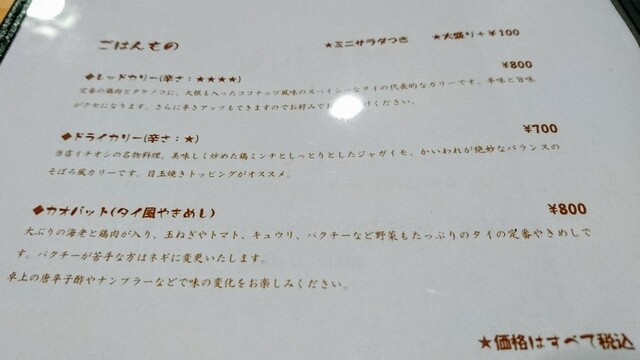 ごはんもの ★ミニサラダつき ★大盛り+¥100
◆レッドカリー(辛さ:★★★★) ¥800
定番の鶏肉とタケノコに、大根も入ったココナッツ風味のスパイシーなタイの代表的なカリーです。辛味と旨味
がクセになります。さらに辛さアップもできますのでお好みでお けください。
◆ドライカリー(辛さ:★) ¥700
当店イチオシの名物料理。美味しく炒めた鶏ミンチとしっとりとしたジャガイモ、かいわれが絶妙なバランスの
そぼろ風カリーです。目玉焼きトッピングがオススメ。
◆カオパット(タイ風やきめし) ¥800
大ぶりの海老と鶏肉が入り、玉ねぎやトマト、キュウリ、パクチーなど野菜もたっぷりのタイの定番やきめしで
す。パクチーが苦手な方はネギに変更いたします。
卓上の唐辛子酢やナンプラーなどで味の変化をお楽しみください。
★価格はすべて税込